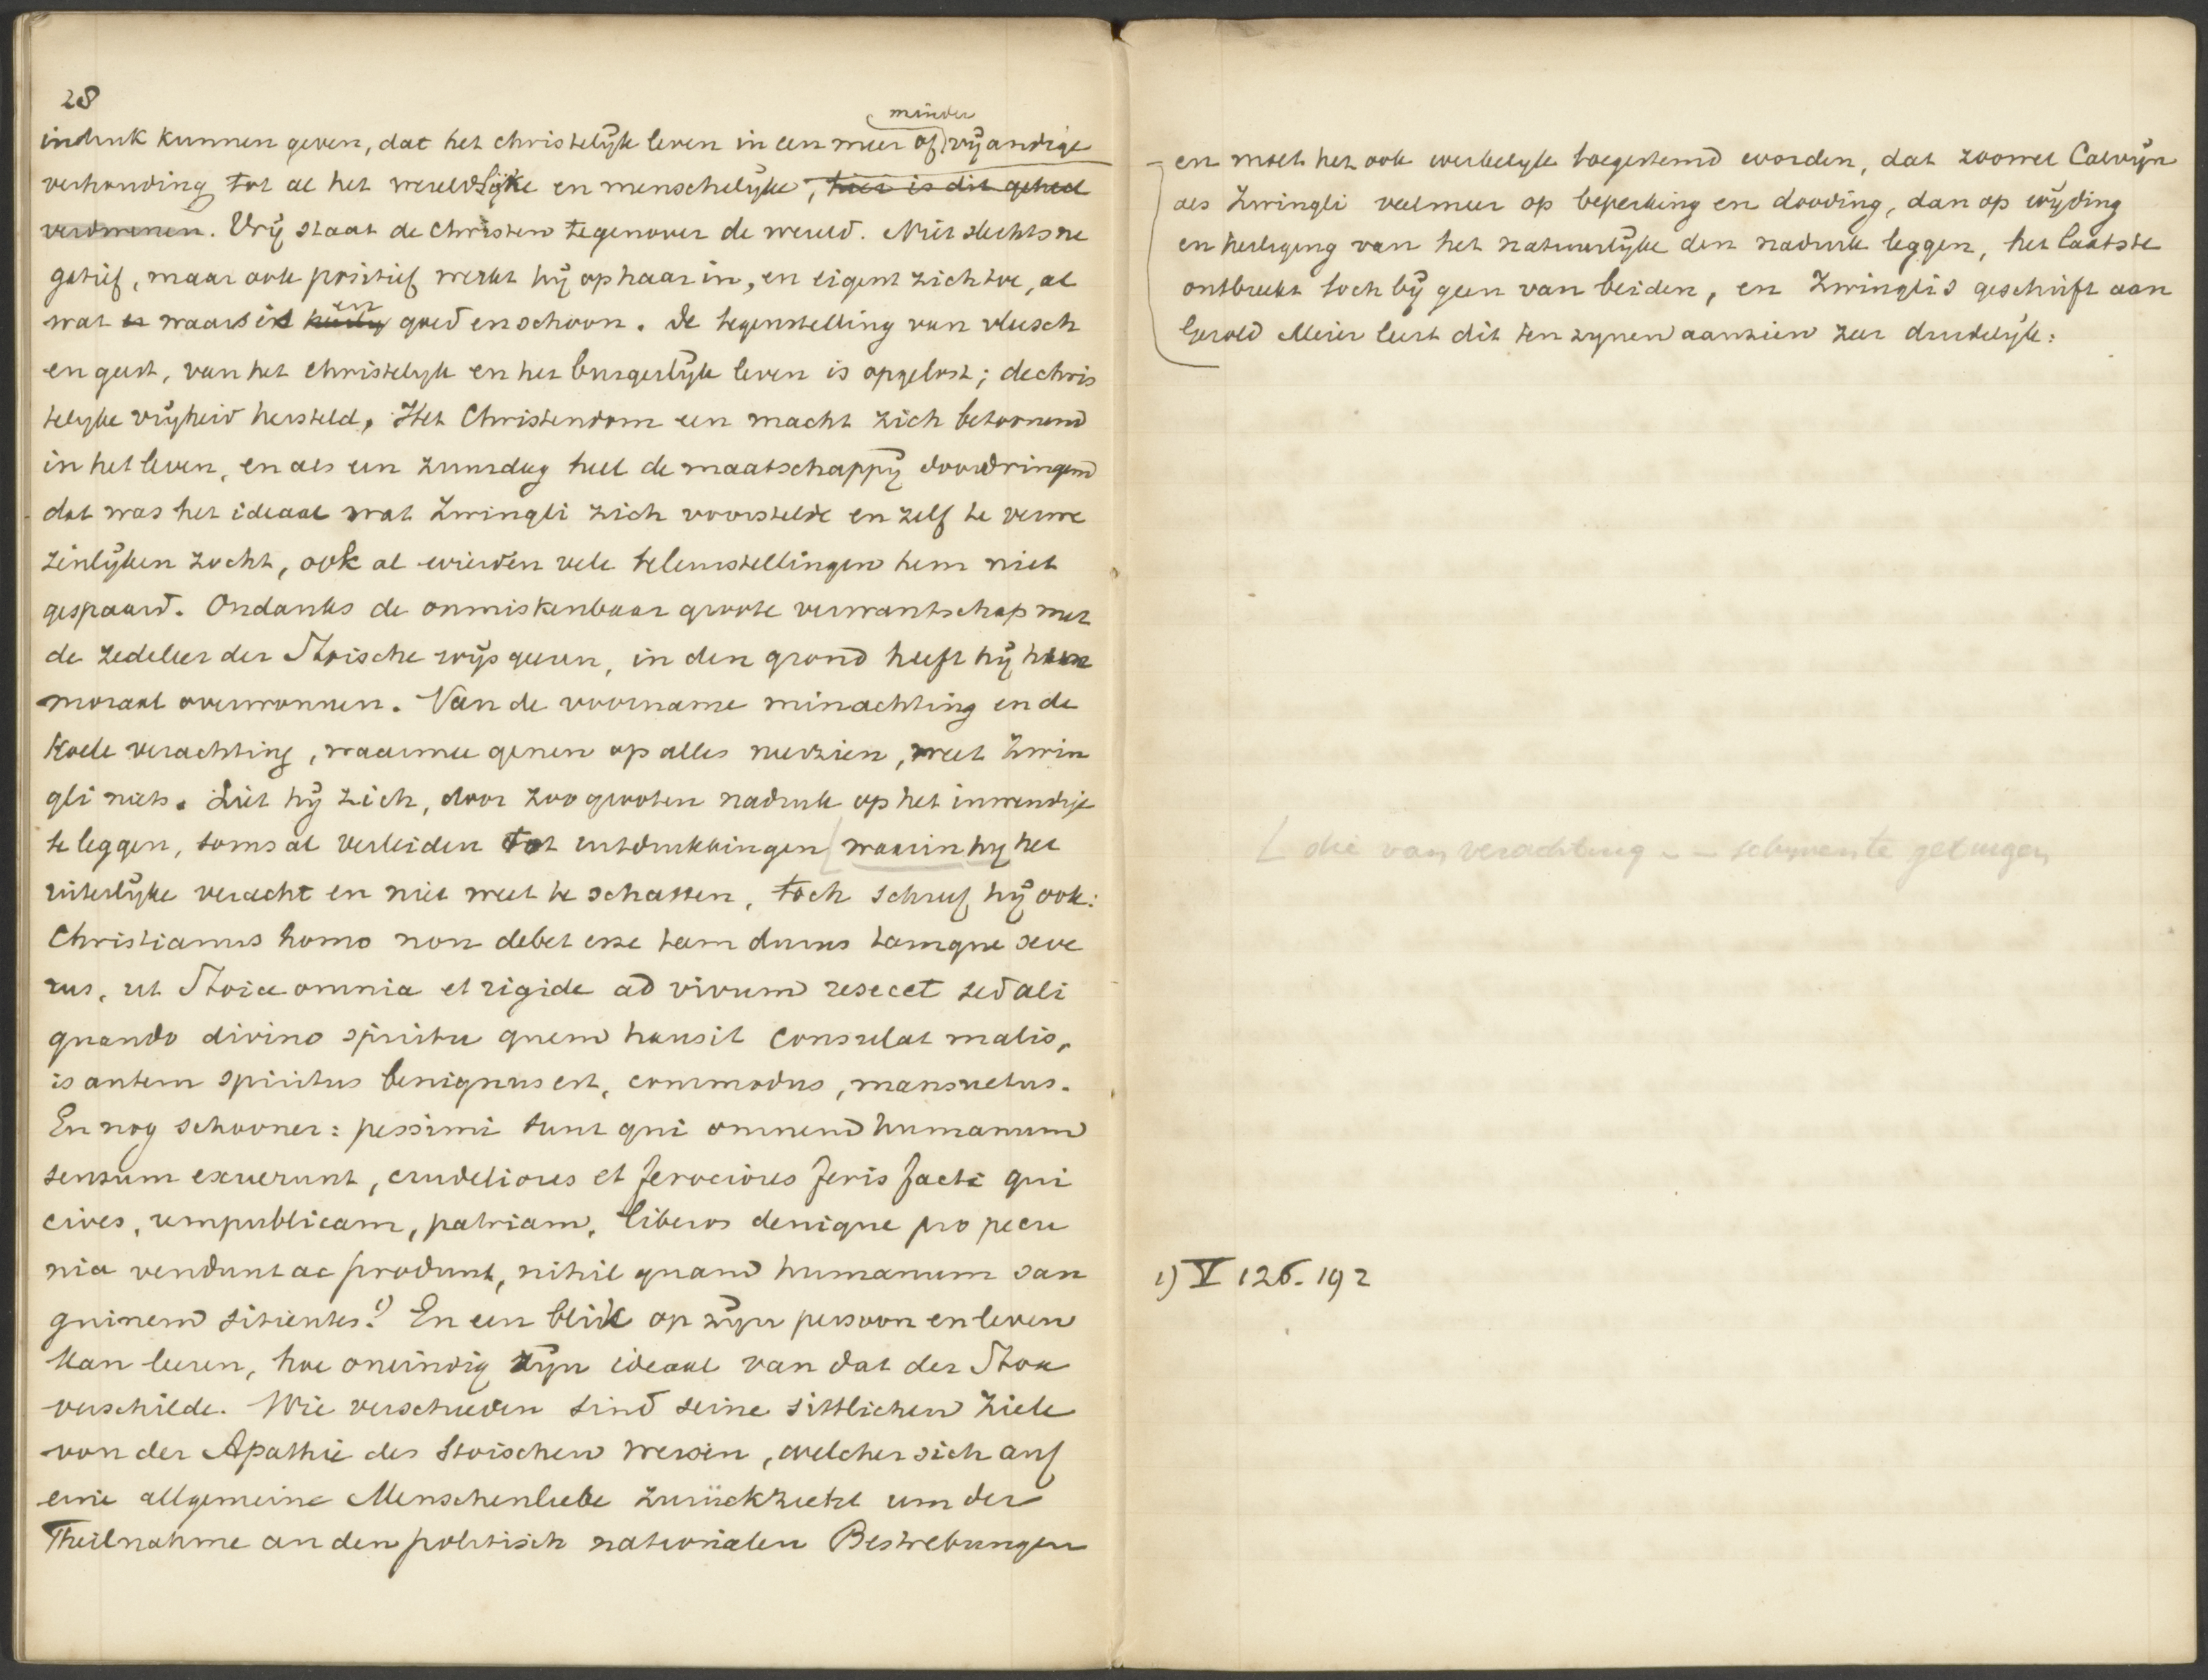 28
minder
indruk kunnen geven, dat het christelijk leven in een meer of vijandige
verhouding tot al het wereldlijke en menschelijke, hier is dit geheel
verdwenen. Vrij staat de Christen tegenover de wereld. Niet slechts ne
gatief, maar ook positief werkt hij op haar in, en eigent zich toe, al
wat er waars is en goed en schoon. De tegenstelling van vleesch
en geest, van het christelijk en het burgerlijk leven is opgelost; de chris
telijke vrijheid hersteld. Het Christendom een macht zich betoonend
in het leven, en als een zuurdeeg heel de maatschappij doordringend
dat was het ideaal wat Zwingli zich voorstelde en zelf te verwe
zenlijken zocht, ook al wierden vele teleurstellingen hem niet
gespaard. Ondanks de onmiskenbaar groote verwantschap met
de zedeleer der Stoische wijsgeeren, in den grond heeft hij hun
moraal overwonnen. Van de voorname minachting en de
koele verachting, waarmee genen op alles neerzien, weet Zwin
gli niets. Liet hij zich, door zoo grooten nadruk op het inwendige
te leggen, soms al verleiden tot uitdrukkingen waarin hij het
uiterlijke veracht en niet weet te schatten, toch schreef hij ook:
Christianus homo non debet esse tam durus tamque seve
rus, ut Stoice omnia et rigide ad vivum resecet sed ali
quando divino spiritu quem hausit consulat malis,
is autem spiritus benignus est, commodus, mansuetus.
En nog schooner: pessimi sunt qui omnem humanum
sensum exuerunt, crudeliores et ferociores feris facti qui
cives, rempublicam, patriam, liberos denique pro pecu
nia vendunt ac produnt, nihil quam humanum san
guinem sitientes.1) En een blik op zijn persoon en leven
kan leeren, hoe oneindig zijn ideaal van dat der Stoa
verschilde. Wie verschieden sind seine sittlichen Ziele
von der Apathie des Stoischen Weisen, welcher sich auf
eine allgemeine Menschenliebe zurückzieht um der
Theilnahme an den politisch nationalen Bestrebungen
en moet het ook werkelijk toegestemd worden, dat zoowel Calvijn
als Zwingli veelmeer op beperking en dooding, dan op wijding
en heiliging van het natuurlijke den nadruk leggen, het laatste
ontbreekt toch bij geen van beiden, en Zwinglis geschrift aan
Gerold Meier leert dit ten zijnen aanzien zeer duidelijk:
die van verachting - - getuigen
1) V 126. 192